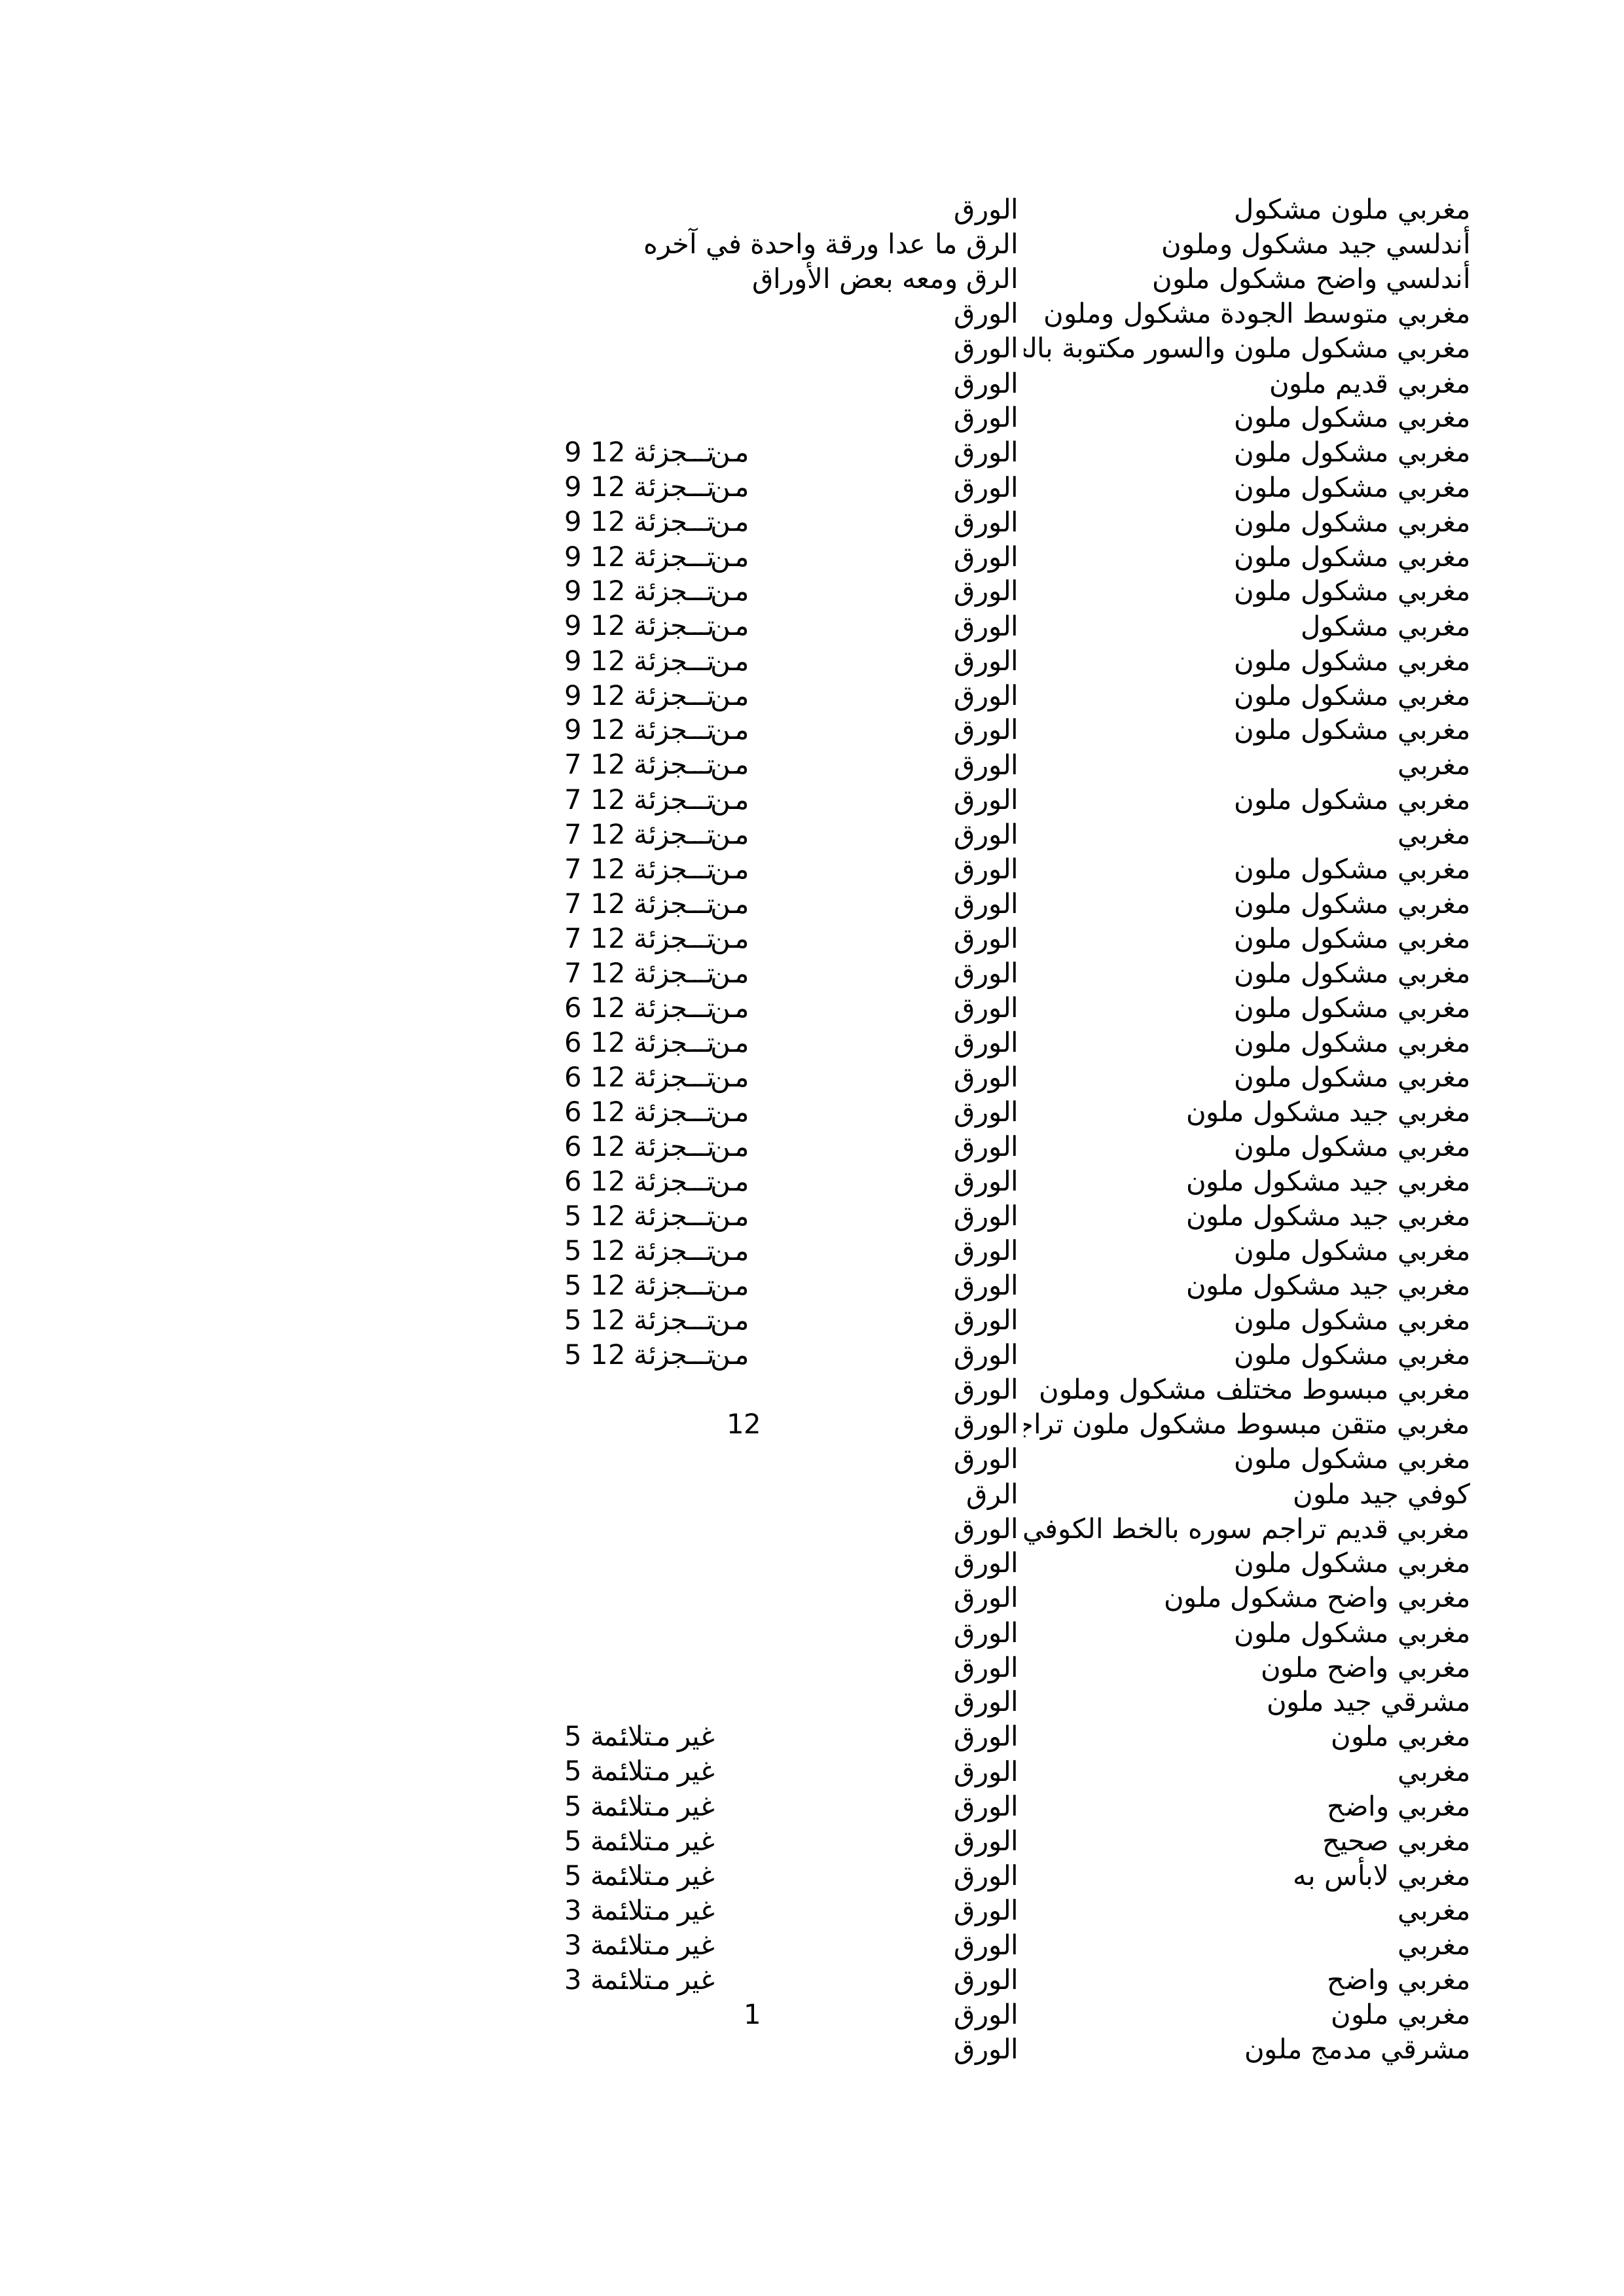 مغربي ملون مشكول الورق
أندلسي جيد مشكول وملون الرق ما عدا ورقة واحدة في آخره
أندلسي واضح مشكول ملون الرق ومعه بعض الأوراق
مغربي متوسط الجودة مشكول وملون الورق
مغربي مشكول ملون والسور مكتوبة الورق
مغربي قديم ملون الورق
مغربي مشكول ملون الورق
مغربي مشكول ملون الورق من تجزئة 12 9
مغربي مشكول ملون الورق من تجزئة 12 9
مغربي مشكول ملون الورق من تجزئة 12 9
مغربي مشكول ملون الورق من تجزئة 12 9
مغربي مشكول ملون الورق من تجزئة 12 9
مغربي مشكول الورق من تجزئة 12 9
مغربي مشكول ملون الورق من تجزئة 12 9
مغربي مشكول ملون الورق من تجزئة 12 9
مغربي مشكول ملون الورق من تجزئة 12 9
مغربي الورق من تجزئة 12 7
مغربي مشكول ملون الورق من تجزئة 12 7
مغربي الورق من تجزئة 12 7
مغربي مشكول ملون الورق من تجزئة 12 7
مغربي مشكول ملون الورق من تجزئة 12 7
مغربي مشكول ملون الورق من تجزئة 12 7
مغربي مشكول ملون الورق من تجزئة 12 7
مغربي مشكول ملون الورق من تجزئة 12 6
مغربي مشكول ملون الورق من تجزئة 12 6
مغربي مشكول ملون الورق من تجزئة 12 6
مغربي جيد مشكول ملون الورق من تجزئة 12 6
مغربي مشكول ملون الورق من تجزئة 12 6
مغربي جيد مشكول ملون الورق من تجزئة 12 6
مغربي جيد مشكول ملون الورق من تجزئة 12 5
مغربي مشكول ملون الورق من تجزئة 12 5
مغربي جيد مشكول ملون الورق من تجزئة 12 5
مغربي مشكول ملون الورق من تجزئة 12 5
مغربي مشكول ملون الورق من تجزئة 12 5
مغربي مبسوط مختلف مشكول وملون الورق
مغربي متقن مبسوط مشكول ملون الورق 12
مغربي مشكول ملون الورق
كوفي جيد ملون الرق
مغربي قديم تراجم سوره بالخط الكوفي الورق
مغربي مشكول ملون الورق
مغربي واضح مشكول ملون الورق
مغربي مشكول ملون الورق
مغربي واضح ملون الورق
مشرقي جيد ملون الورق
مغربي ملون الورق غير متلائمة 5
مغربي الورق غير متلائمة 5
مغربي واضح الورق غير متلائمة 5
مغربي صحيح الورق غير متلائمة 5
مغربي لابأس به الورق غير متلائمة 5
مغربي الورق غير متلائمة 3
مغربي الورق غير متلائمة 3
مغربي واضح الورق غير متلائمة 3
مغربي ملون الورق 1
مشرقي مدمج ملون الورق